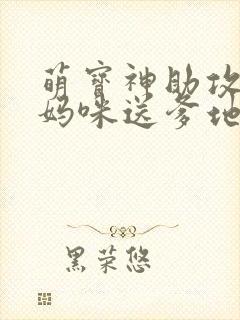 萌寶神助攻
媽咪送爹地
黑荣悠